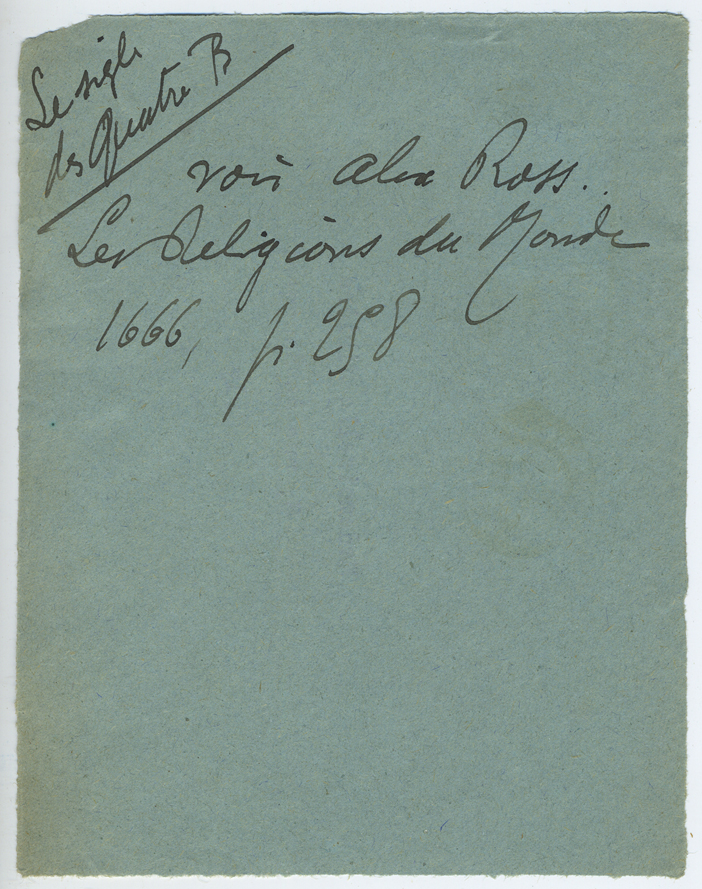 Le sigle
des Quatre B
voir Alex Ross..
Les Religions du Monde
1666, p. 258